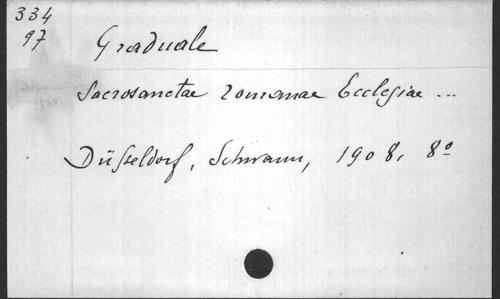 334
97
Graduale
Sacrosanctae romanae Ecclesiae ...
Düsseldorf, Schwann, 1908, 8º